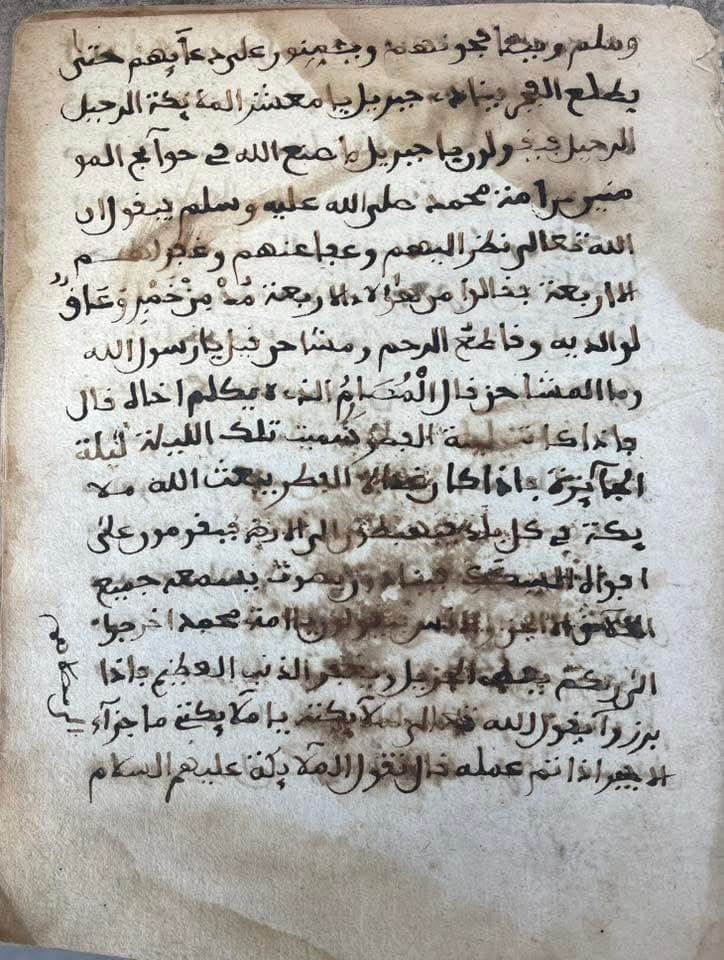 وسلم ويصافحونهم ويؤمنون على دعآيهم حتى
يطلع الفجر ينادي جبريل يا معشر الملآيكة الرحيل
الرحيل فيقولون يا جبريل ما صنع الله في حوآيج المو
منين من امة محمد صلى الله عليه وسلم يقول ان
الله تعالى نظر اليهم وعفا عنهم وغفر لهم
الاربعة فقالوا من هؤلاء الاربعة مُدْمِنْ خَمْرٍ وَعَاقٌ
لوالديه وقاطع الرحم ومشاحن قيل يا رسول الله
وما المشاحن قال الْمُصَارِمُ الذي لا يكلم اخاه قال
فاذا كانت ليلة الفطر سُميت تلك الليلة ليلة
الجآيزة فاذا كان غداة الفطر يبعث الله ملا
يكة في كل بلد فيهبطون الى الارض فيقومون على
افواه السكك فينادون بصوت يسمعه جميع
الخلايق الا الجن والانس فيقولون يا امة محمد اخرجوا
الى ربكم يعطي الجزيل ويغفر الذنب العظيم فاذا
برزوا يقول الله تعالى للملآيكة يا ملآيكتي ما جزآء
الاجير اذا تم عمله قال تقول الملآيكة عليهم السلام